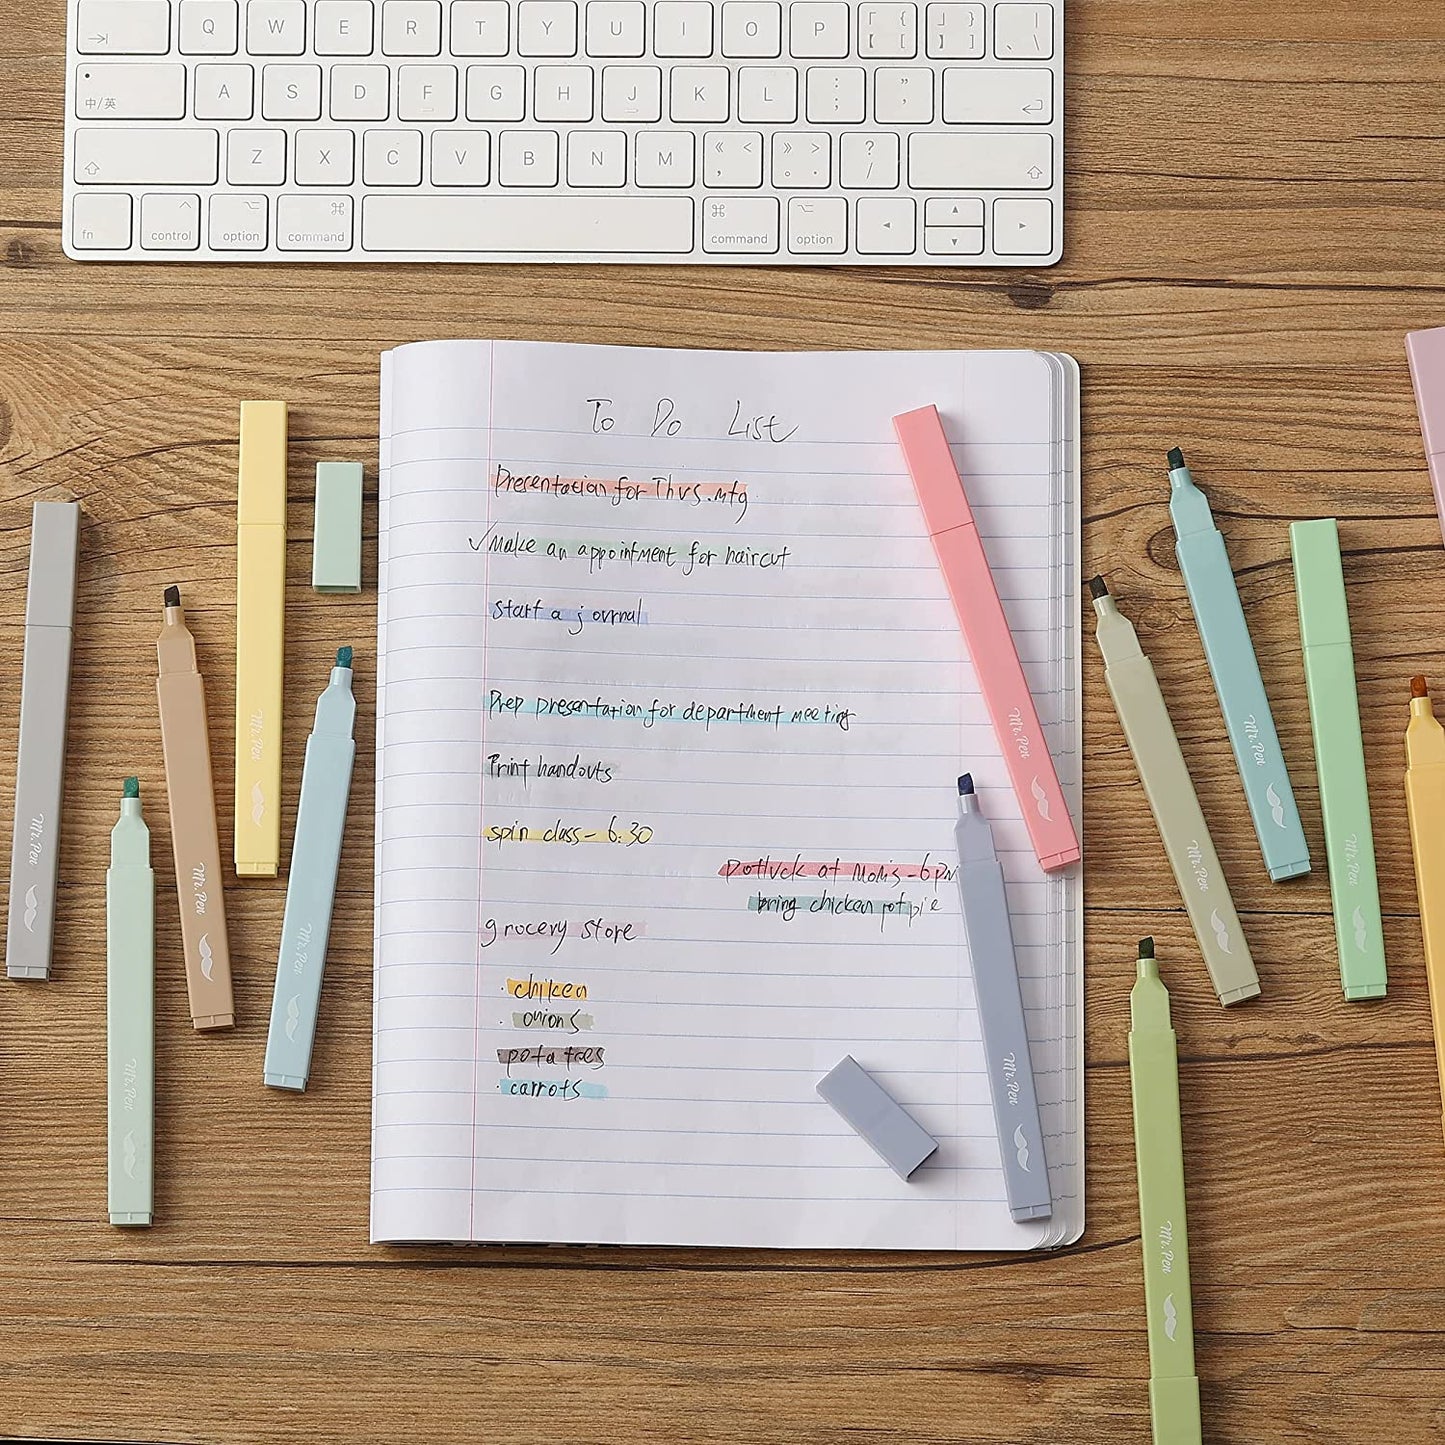 Q W E R T Y U I O P 「 { 【 [ 」 } 】 ] | 、 \
中/英 A S D F G H J K L : ; " ' 
Z X C V B N M 《 < , 》 > 。 . ? /
fn control option command command option
To Do List
Presentation for Thurs. mtg.
✓ Make an appointment for haircut
Start a journal
Prep presentation for department meeting
Print handouts
spin class - 6:30
potluck at Mom's - 6pm
bring chicken pot pie
grocery store
· chicken
· onions
· potatoes
· carrots
Mr. Pen
Mr. Pen
Mr. Pen
Mr. Pen
Mr. Pen
Mr. Pen
Mr. Pen
Mr. Pen
Mr. Pen
Mr. Pen
Mr. Pen